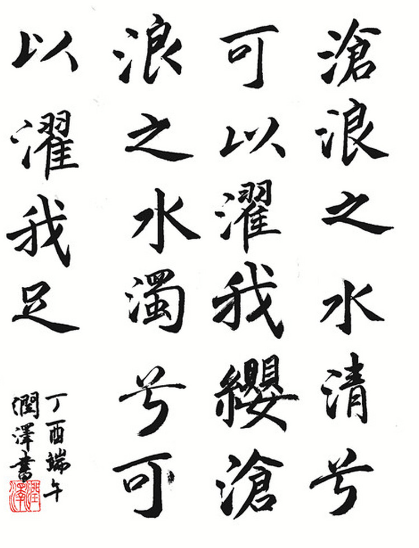 滄浪之水清兮
可以濯我纓滄
浪之水濁兮可
以濯我足
丁酉端午
潤澤書
潤澤